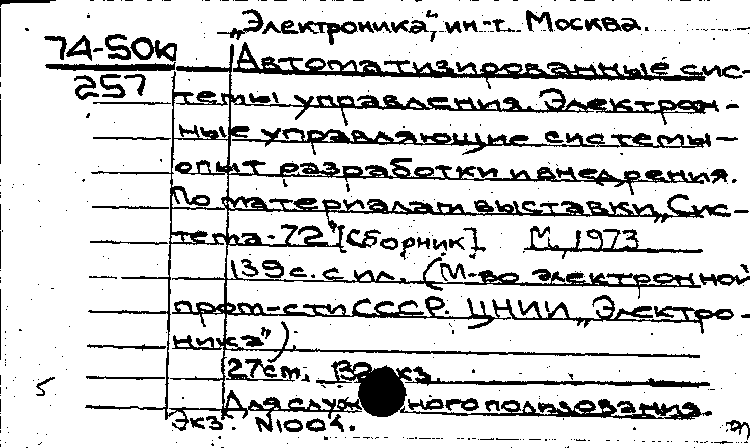 „Электроника“, ин-т. Москва.
74-50к
257
Автоматизированные сис-
темы управления. Электрон-
ные управляющие системы –
опыт разработки и внедрения.
По материалам выставки „Сис-
тема-72" [Сборник]. М., 1973
139 с. с ил. (М-во электронной
пром-сти СССР. ЦНИИ „Электро-
ника").
27 см. экз.
Для служебного пользования.
Экз. N1004.
5